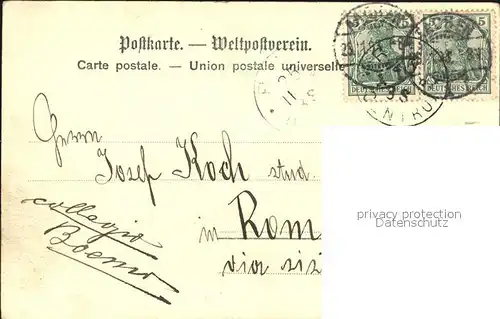 Postkarte. — Weltpostverein.
Carte postale. — Union postale universelle
5
DEUTSCHES REICH
DEUTSCHES REICH
Herrn
Josef Koch stud.
in Rom
via
collegio
Boemo
privacy protection
Datenschutz